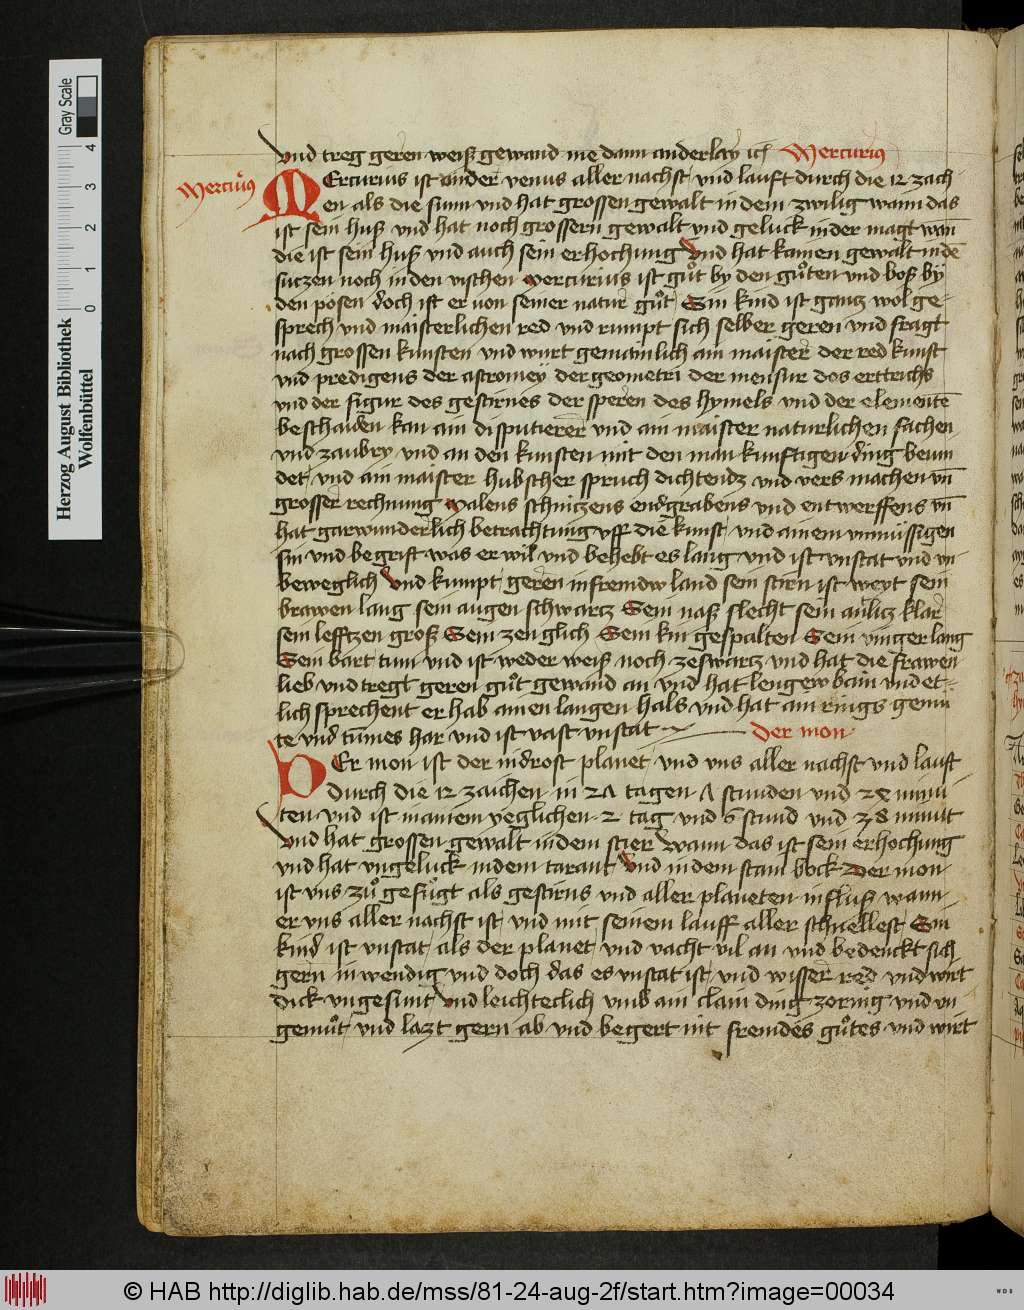 vnd treg geren weiß gewand me dann anderlay ꝛc Mercurius
Mercurius
MErcurius ist ainder venus aller nachst vnd lauft durch die 12 zach-
en als die sunn vnd hat grossen gewalt in dem zwilig wann das
ist sein huß vnd hat noch grossern gewalt vnd geluck inder magt wan̄
die ist sein huß vnd auch sein erhochung Vnd hat kainen gewalt in dē
suczen noch in den vischen Mercurius ist gůt by den gůten vnd boß bÿ
den posen doch ist er von seiner natur gůt Sin kind ist gancz wol ge-
sprech vnd maisterlichen red vnd rumpt sich selber geren vnd fragt
nach grossen kunsten vnd wurt gemainlich ain maister der red kunst
vnd predigens der astromeÿ der geometri der mensur des erttrichs
vnd der figur des gestirnes der speren des hymels vnd der elementē
beschawen kan ain disputierer vnd ain maister naturlichen sachen
vnd zaubry vnd an den kunsten mit den man kunftigen ding bewin
det vnd ain maister hubscher spruch dichtendz vnd vers machen vn̄
grosser rechnung malens schniczens end grabens vnd entwerffens vn̄
hat gar wunderlich betrachtung vff die kunst vnd ainem vnmüssigen
sin vnd begrift was er wil vnd behebt es lang vnd ist vnstat vnd vn
beweglich Vnd kumpt geren in fremdw land sein stirn ist weyt sein
brawen lang sein augen schwarcz Sein naß slecht sein antlicz klar
sein lefftzen groß Sein zen glich Sein kin gespalten Sein vinger lang
Sein bart tunn vnd ist weder weiß noch zeswarcz vnd hat die frawen
lieb vnd tregt geren gůt gewand an vnd hat lengew bain vnd et-
lich sprechent er hab ainen langen hals vnd hat ain rings gemu
te vnd tunnes har vnd ist vast vnstat der mon
DEr mon ist der indrost planet vnd vns aller nachst vnd lauft
durch die 12 zaichen in 27 tagen 7 stunden vnd 28 minu
ten vnd ist in ainem yeglichen 2 tag vnd 6 stund vnd 38 minut
Vnd hat grossen gewalt in dem stier Wann das ist sein erhochung
vnd hat vngeluck in dem tarant Vnd in dem stain bock Der mon
ist vns zů gefügt als gestirns vnd aller planeten influß wann
er vns aller nachst ist vnd mit seinem lauff aller schnellest Sin
kind ist vnstat als der planet vnd vacht vil an vnd bedenckt sich
gern in wendig vnd doch das es vnstat ist vnd wisser red vnd wirt
dick vngesunt Vnd leichteclich vmb ain clain ding zornig vnd vn
gemůt vnd lazt gern ab vnd begert nit fremdes gůtes vnd wirt
Herzog August Bibliothek
Wolfenbüttel
0 1 2 3 4
Gray Scale
© HAB http://diglib.hab.de/mss/81-24-aug-2f/start.htm?image=00034